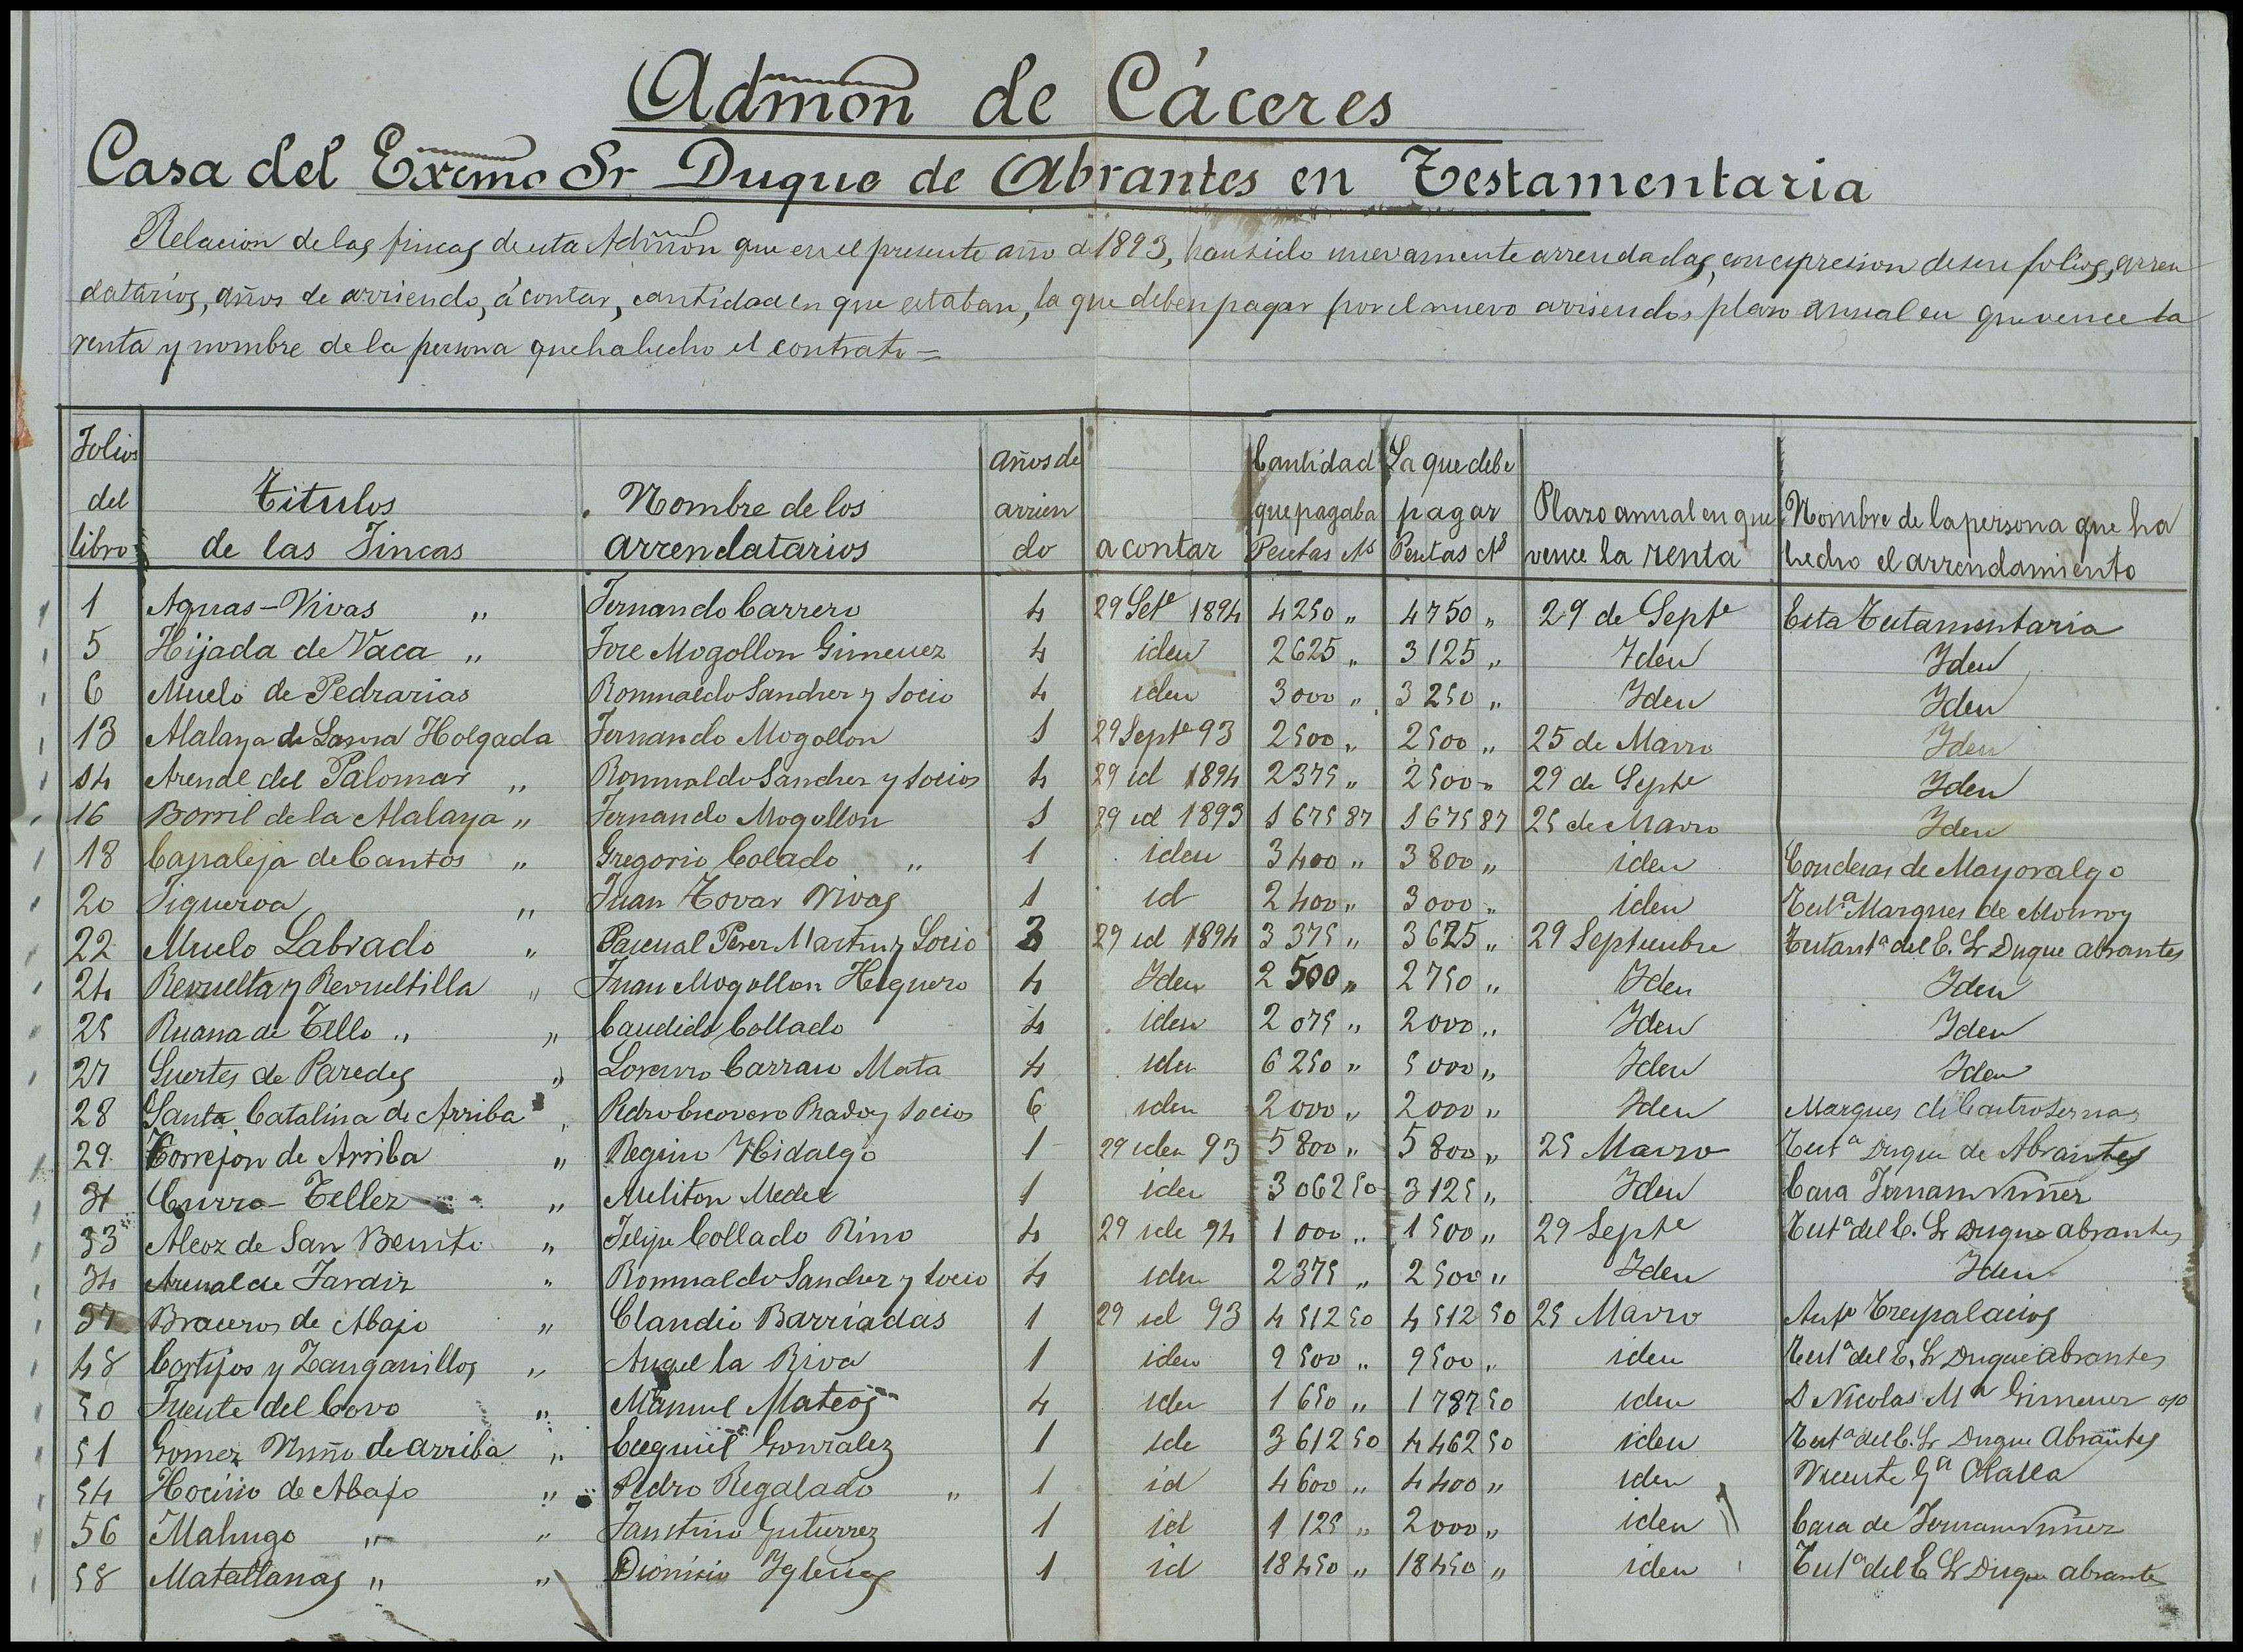 Admon de Cáceres
Casa del Excmo Sr Duque de Abrantes en Testamentaria
Relacion de las fincas de esta Admon que en el presente año de 1893, han sido nuevamente arrendadas, con expresion de sus folios, arren
datarios, años de arriendo, á contar, cantidad en que estaban, la que deben pagar por el nuevo arriendo, plazo anual en que vence la
renta y nombre de la persona que ha hecho el contrato =
Folios del libro Titulos de las Fincas Nombre de los arrendatarios años de arriendo a contar Cantidad que pagaba Pesetas Cs La que debe pagar Pesetas Cs Plazo anual en que vence la renta Nombre de la persona que ha hecho el arrendamiento
1 Aguas-Vivas " Fernando Carrero 4 29 Sete 1894 4250 " 4750 " 29 de Septe Esta Testamentaria
5 Hijada de Vaca " Jose Mogollon Gimenez 4 iden 2625 " 3125 " Iden Iden
6 Muelo de Pedrarias Romualdo Sanchez y Socio 4 iden 3000 " 3250 " Iden Iden
13 Atalaya de Lasma Holgada Fernando Mogollon 1 29 Septe 93 2500 " 2500 " 25 de Marzo Iden
14 Arenal del Palomar " Romualdo Sanchez y Socios 4 29 id 1894 2375 " 2500 " 29 de Septe Iden
16 Borril de la Atalaya " Fernando Mogollon 1 29 id 1893 1675 87 1675 87 25 de Marzo Iden
18 Capaleja de Cantos " Gregorio Colado " 1 iden 3400 " 3800 " iden Condesa de Mayoralgo
20 Figueroa " Juan Tovar Vivas 1 id 2400 " 3000 " iden Testa Marques de Monroy
22 Muelo Labrado " Pascual Perez Martin y Socio 3 29 id 1894 3375 " 3625 " 29 Septiembre Testamta del E. Sr Duque Abrantes
24 Revuelta y Revueltilla " Juan Mogollon Higuero 4 Iden 2500 " 2750 " Iden Iden
25 Ruana de Tello " " Candido Collado 4 iden 2075 " 2000 " Iden Iden
27 Suertes de Paredes " Lorenzo Carran Mata 4 iden 6250 " 5000 " Iden Iden
28 Santa Catalina de Arriba " Pedro Escovero Prado y Socios 6 iden 2000 " 2000 " Iden Marques de Castroserna
29 Torrejon de Arriba " Regino Hidalgo 1 29 iden 93 5800 " 5800 " 25 Marzo Testa Duque de Abrantes
31 Curro-Tellez " Meliton Medel 1 iden 3062 50 3125 " Iden Casa Fernan Nuñez
33 Alcoz de San Benito " Felipe Collado Rino 4 29 ide 94 1000 " 1500 " 29 Septe Testa del E. Sr Duque Abrantes
34 Arenal de Jardiz " Romualdo Sanchez y Socio 4 iden 2375 " 2500 " Iden Iden
37 Braceros de Abajo " Claudio Barriadas 1 29 id 93 4512 50 4512 50 25 Marzo Anto Trespalacios
48 Cortijos y Zanganillos " Angel la Riva 1 iden 9500 " 9500 " iden Testa del E. Sr Duque Abrantes
50 Fuente del Covo " Manuel Mateos 4 iden 1650 " 1787 50 iden D Nicolas Ma Gimenez
51 Gomez Nuño de arriba " Ezequiel Gonzalez 1 ide 3612 50 4462 50 iden Testa del E. Sr Duque Abrantes
54 Hocino de Abajo " Pedro Regalado " 1 id 4600 " 4400 " iden Vicente Ga Olalla
56 Malhugo " " Faustino Gutierrez 1 id 1125 " 2000 " iden Casa de Fernan Nuñez
58 Matallanas " " Dionisio Yglesias 1 id 18450 " 18450 " iden Testa del E Sr Duque Abrantes